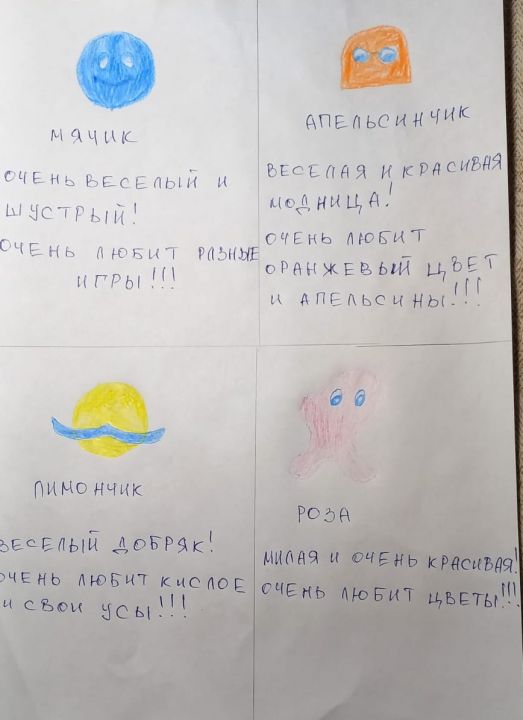 МЯЧИК
ОЧЕНЬ ВЕСЕЛЫЙ И
ШУСТРЫЙ!
ОЧЕНЬ ЛЮБИТ РАЗНЫЕ
ИГРЫ!!!
АПЕЛЬСИНЧИК
ВЕСЕЛАЯ И КРАСИВАЯ
МОДНИЦА!
ОЧЕНЬ ЛЮБИТ
ОРАНЖЕВЫЙ ЦВЕТ
И АПЕЛЬСИНЫ!!!
ЛИМОНЧИК
ВЕСЕЛЫЙ ДОБРЯК!
ОЧЕНЬ ЛЮБИТ КИСЛОЕ
И СВОИ УСЫ!!!
РОЗА
МИЛАЯ И ОЧЕНЬ КРАСИВАЯ!
ОЧЕНЬ ЛЮБИТ ЦВЕТЫ!!!